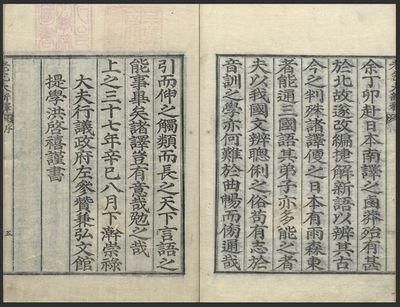 余丁卯赴日本南譯之鹵莽殆有甚
於北故遂改編捷解新語以辨其古
今之判殊諸譯便之日本有雨森東
者能通三國語其弟子亦多能之者
夫以我國文辨聰俐之俗苟有志於
音訓之學亦何難於曲暢而傍通哉
引而伸之觸類而長之天下言語之
能事畢矣諸譯豈有意哉勉之哉
上之三十七年辛巳八月下澣崇祿
大夫行議政府左參贊兼弘文館
提學洪啓禧謹書
老乞大新釋序
五